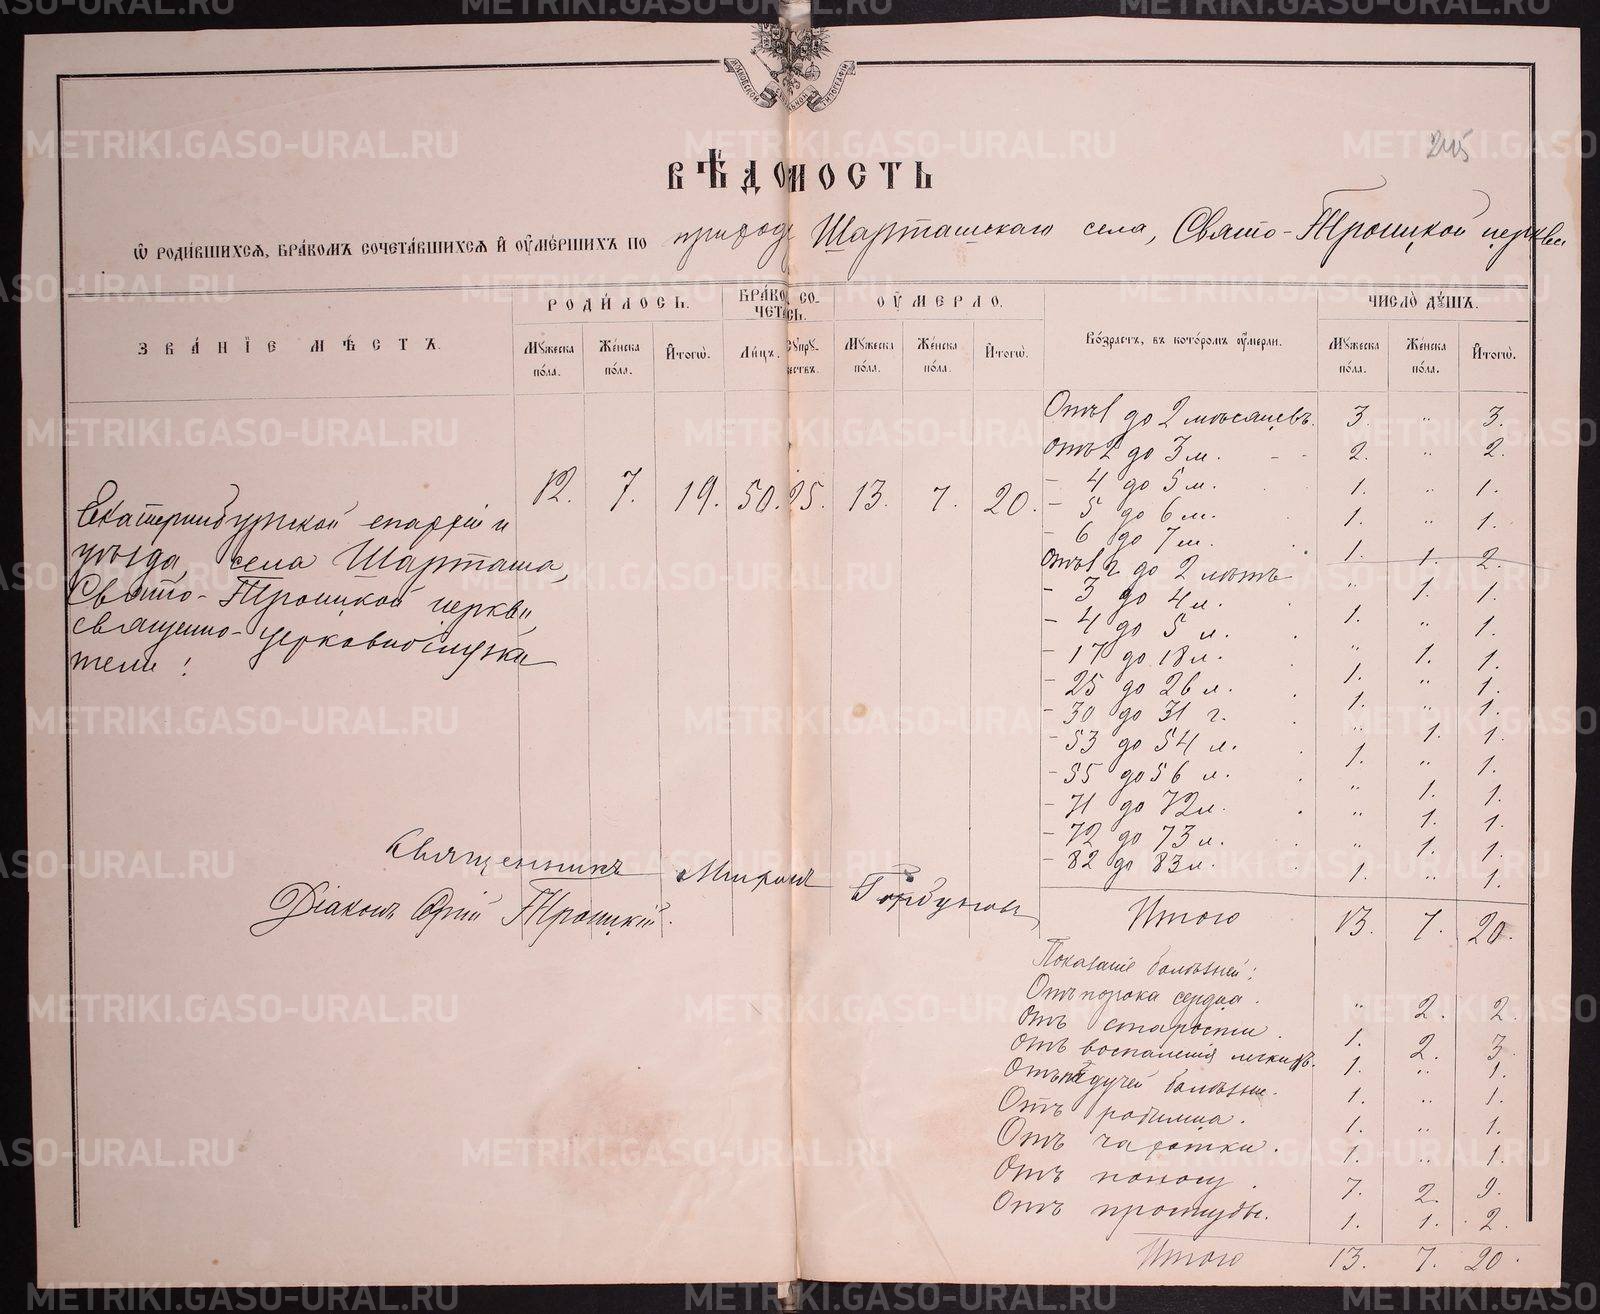 МОСКОВСКОЙ СѴНОДАЛЬНОЙ ТИПОГРАФІИ
245
ВѢДОМОСТЬ
Ѡ РОДИ́ВШИХСѦ, БРА́КОМЪ СОЧЕТА́ВШИХСѦ И҆ ОУ҆МЕ́РШИХЪ ПО приходу Шарташскаго села, Свято-Троицкой церкви
ЗВА́НІЕ МѢ́СТЪ.
РОДИ́ЛОСЬ.
БРА́КОМЪ СОЧЕТА́ЛОСЬ.
ОУ҆́МЕРЛО.
Во́зрастъ, въ кото́ромъ оу҆́мерли.
ЧИСЛО̀ ДꙊ́ШЪ.
Мꙋ́жеска по́ла. Же́нска по́ла. И҆тогѡ̀. Ли́цъ. Сꙋпрꙋ́жествъ. Мꙋ́жеска по́ла. Же́нска по́ла. И҆тогѡ̀. Мꙋ́жеска по́ла. Же́нска по́ла. И҆тогѡ̀.
Екатеринбургской епархіи и
уѣзда, села Шарташа,
Свято-Троицкой церкви,
священно-церковнослужи
тели:
12. 7. 19. 50. 25. 13. 7. 20.
Отъ 1 до 2 мѣсяцевъ. 3. " 3.
Отъ 2 до 3 м. - - 2. " 2.
- 4 до 5 м. 1. " 1.
- 5 до 6 м. 1. " 1.
- 6 до 7 м. 1. 1. 2.
Отъ 1 г до 2 лѣтъ " 1. 1.
- 3 до 4 л. 1. " 1.
- 4 до 5 л. " 1. 1.
- 17 до 18 л. 1. " 1.
- 25 до 26 л. 1. " 1.
- 30 до 31 г. " 1. 1.
- 53 до 54 л. 1. " 1.
- 55 до 56 л. " 1. 1.
- 71 до 72 л. " 1. 1.
- 72 до 73 л. " 1. 1.
- 82 до 83 л. 1. " 1.
Итого 13. 7. 20.
Священникъ Миронъ Горбуновъ
Діаконъ Юрій Троицкій.
Показаніе болѣзней:
Отъ порока сердца. " 2. 2.
Отъ старости. 1. 2. 3.
Отъ воспаленія легкихъ. 1. " 1.
Отъ падучей болѣзни. 1. " 1.
Отъ родимца. 1. " 1.
Отъ чахотки. 1. " 1.
Отъ поносу. 7. 2. 9.
Отъ простуды. 1. 1. 2.
Итого 13. 7. 20.
METRIKI.GASO-URAL.RU